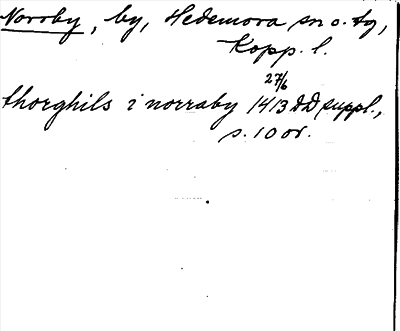 Norrby, by, Hedemora sn o. tg,
Kopp. l.
27/6
thorghils i norraby 1413 DD suppl.,
s. 10 or.